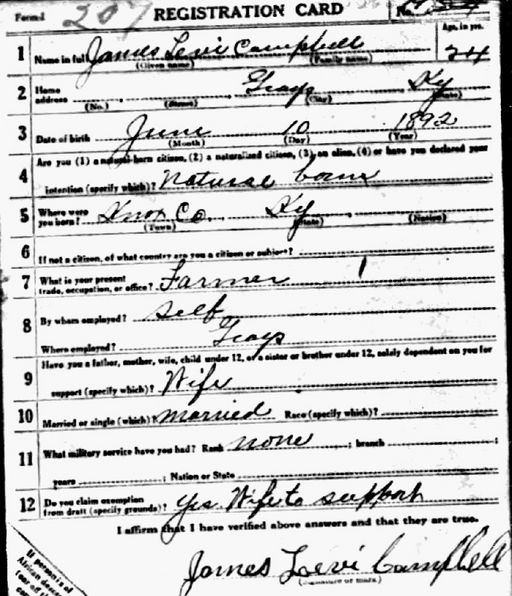 Form 1 207 REGISTRATION CARD No.
1 Name in full James Levi Campbell Age, in yrs. 24
(Given name) (Family name)
2 Home address Grays Ky
(No.) (Street) (City) (State)
3 Date of birth June 10 1892
(Month) (Day) (Year)
4 Are you (1) a natural-born citizen, (2) a naturalized citizen, (3) an alien, (4) or have you declared your
intention (specify which)? Natural born
5 Where were you born? Knox Co. Ky
(Town) (State) (Nation)
6 If not a citizen, of what country are you a citizen or subject?
7 What is your present trade, occupation, or office? Farmer
8 By whom employed? Self
Where employed? Grays
9 Have you a father, mother, wife, child under 12, or a sister or brother under 12, solely dependent on you for
support (specify which)? Wife
10 Married or single (which)? Married Race (specify which)?
11 What military service have you had? Rank none ; branch ;
years ; Nation or State
12 Do you claim exemption from draft (specify grounds)? Yes. Wife to support
I affirm that I have verified above answers and that they are true.
James Levi Campbell
(Signature or mark)
If person is of
African descent